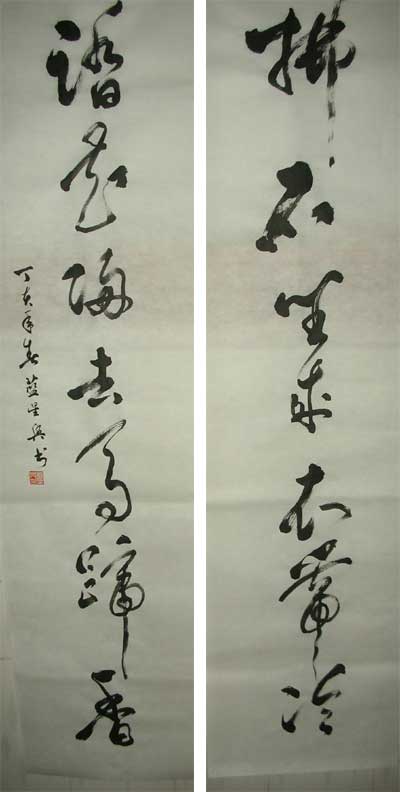 拂石坐來衣帶冷
踏花歸去馬蹄香
丁亥年春藍星興书